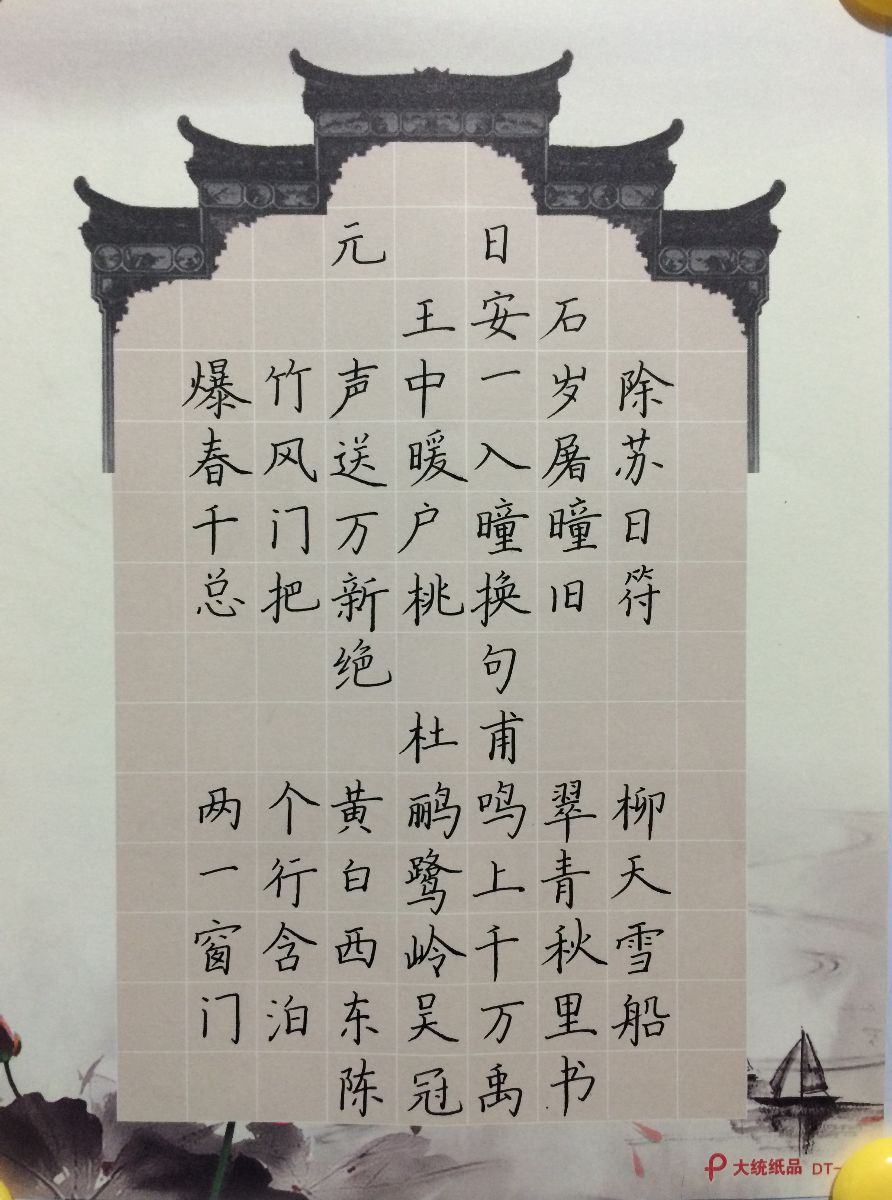 元日
王安石
爆竹声中一岁除
春风送暖入屠苏
千门万户曈曈日
总把新桃换旧符
绝句
杜甫
两个黄鹂鸣翠柳
一行白鹭上青天
窗含西岭千秋雪
门泊东吴万里船
陈冠禹书
大统纸品 DT-